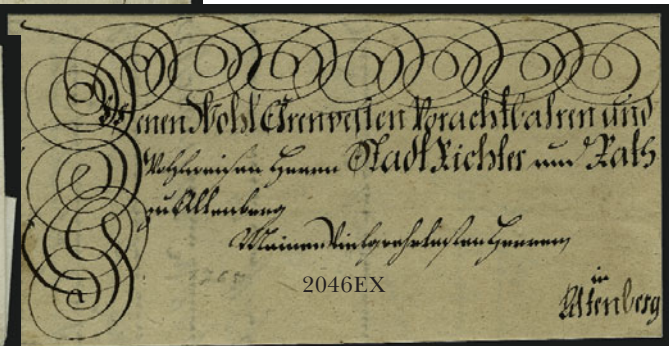 Denen Wohl Ehrenvesten Vorachtbahren und
Wohlweisen Herren Stadt Richter und Rath
zu Altenberg
Meinen Vielgeehrtesten Herren
2046EX
in
Altenberg